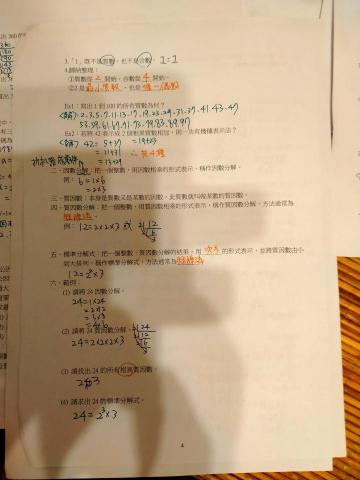 3.「1」既不是質數,也不是合數。1=1
4.歸納整理:
①質數從 2 開始,合數從 4 開始。
②2 是最小質數,也是唯一偶數
Ex1:寫出 1 到 100 的所有質數為何?
2.3.5.7.11.13.17.19.23.29.31.37.41.43.47
53.59.61.67.71.73.79.83.89.97
42=5+37 =19+23
=11+31 共4種
=13+29
二、因數分解:把一個整數,用因數相乘的形式表示,稱作因數分解。
例:6=1×6
=2×3
三、質因數:本身是質數又是某數的因數,此質數就叫做某數的質因數。
四、質因數分解:把一個整數,用質因數相乘的形式表示,稱作質因數分解。方法通常為
短除法
例:12=2×2×3 或 2|12
2|6
3
五、標準分解式:把一個整數,質因數分解的結果,用次方的形式表示,並將質因數由小
到大排列,稱作標準分解式。方法通常為短除法
12=2²×3
六、範例:
(1) 請將 24 因數分解。
24=1×24
=2×12
=3×8
=4×6
(2) 請將 24 質因數分解。 2|24
24=2×2×2×3 2|12
2|6
3
(3) 請找出 24 的所有相異質因數。
2、3
(4) 請求出 24 的標準分解式。
24=2³×3
4